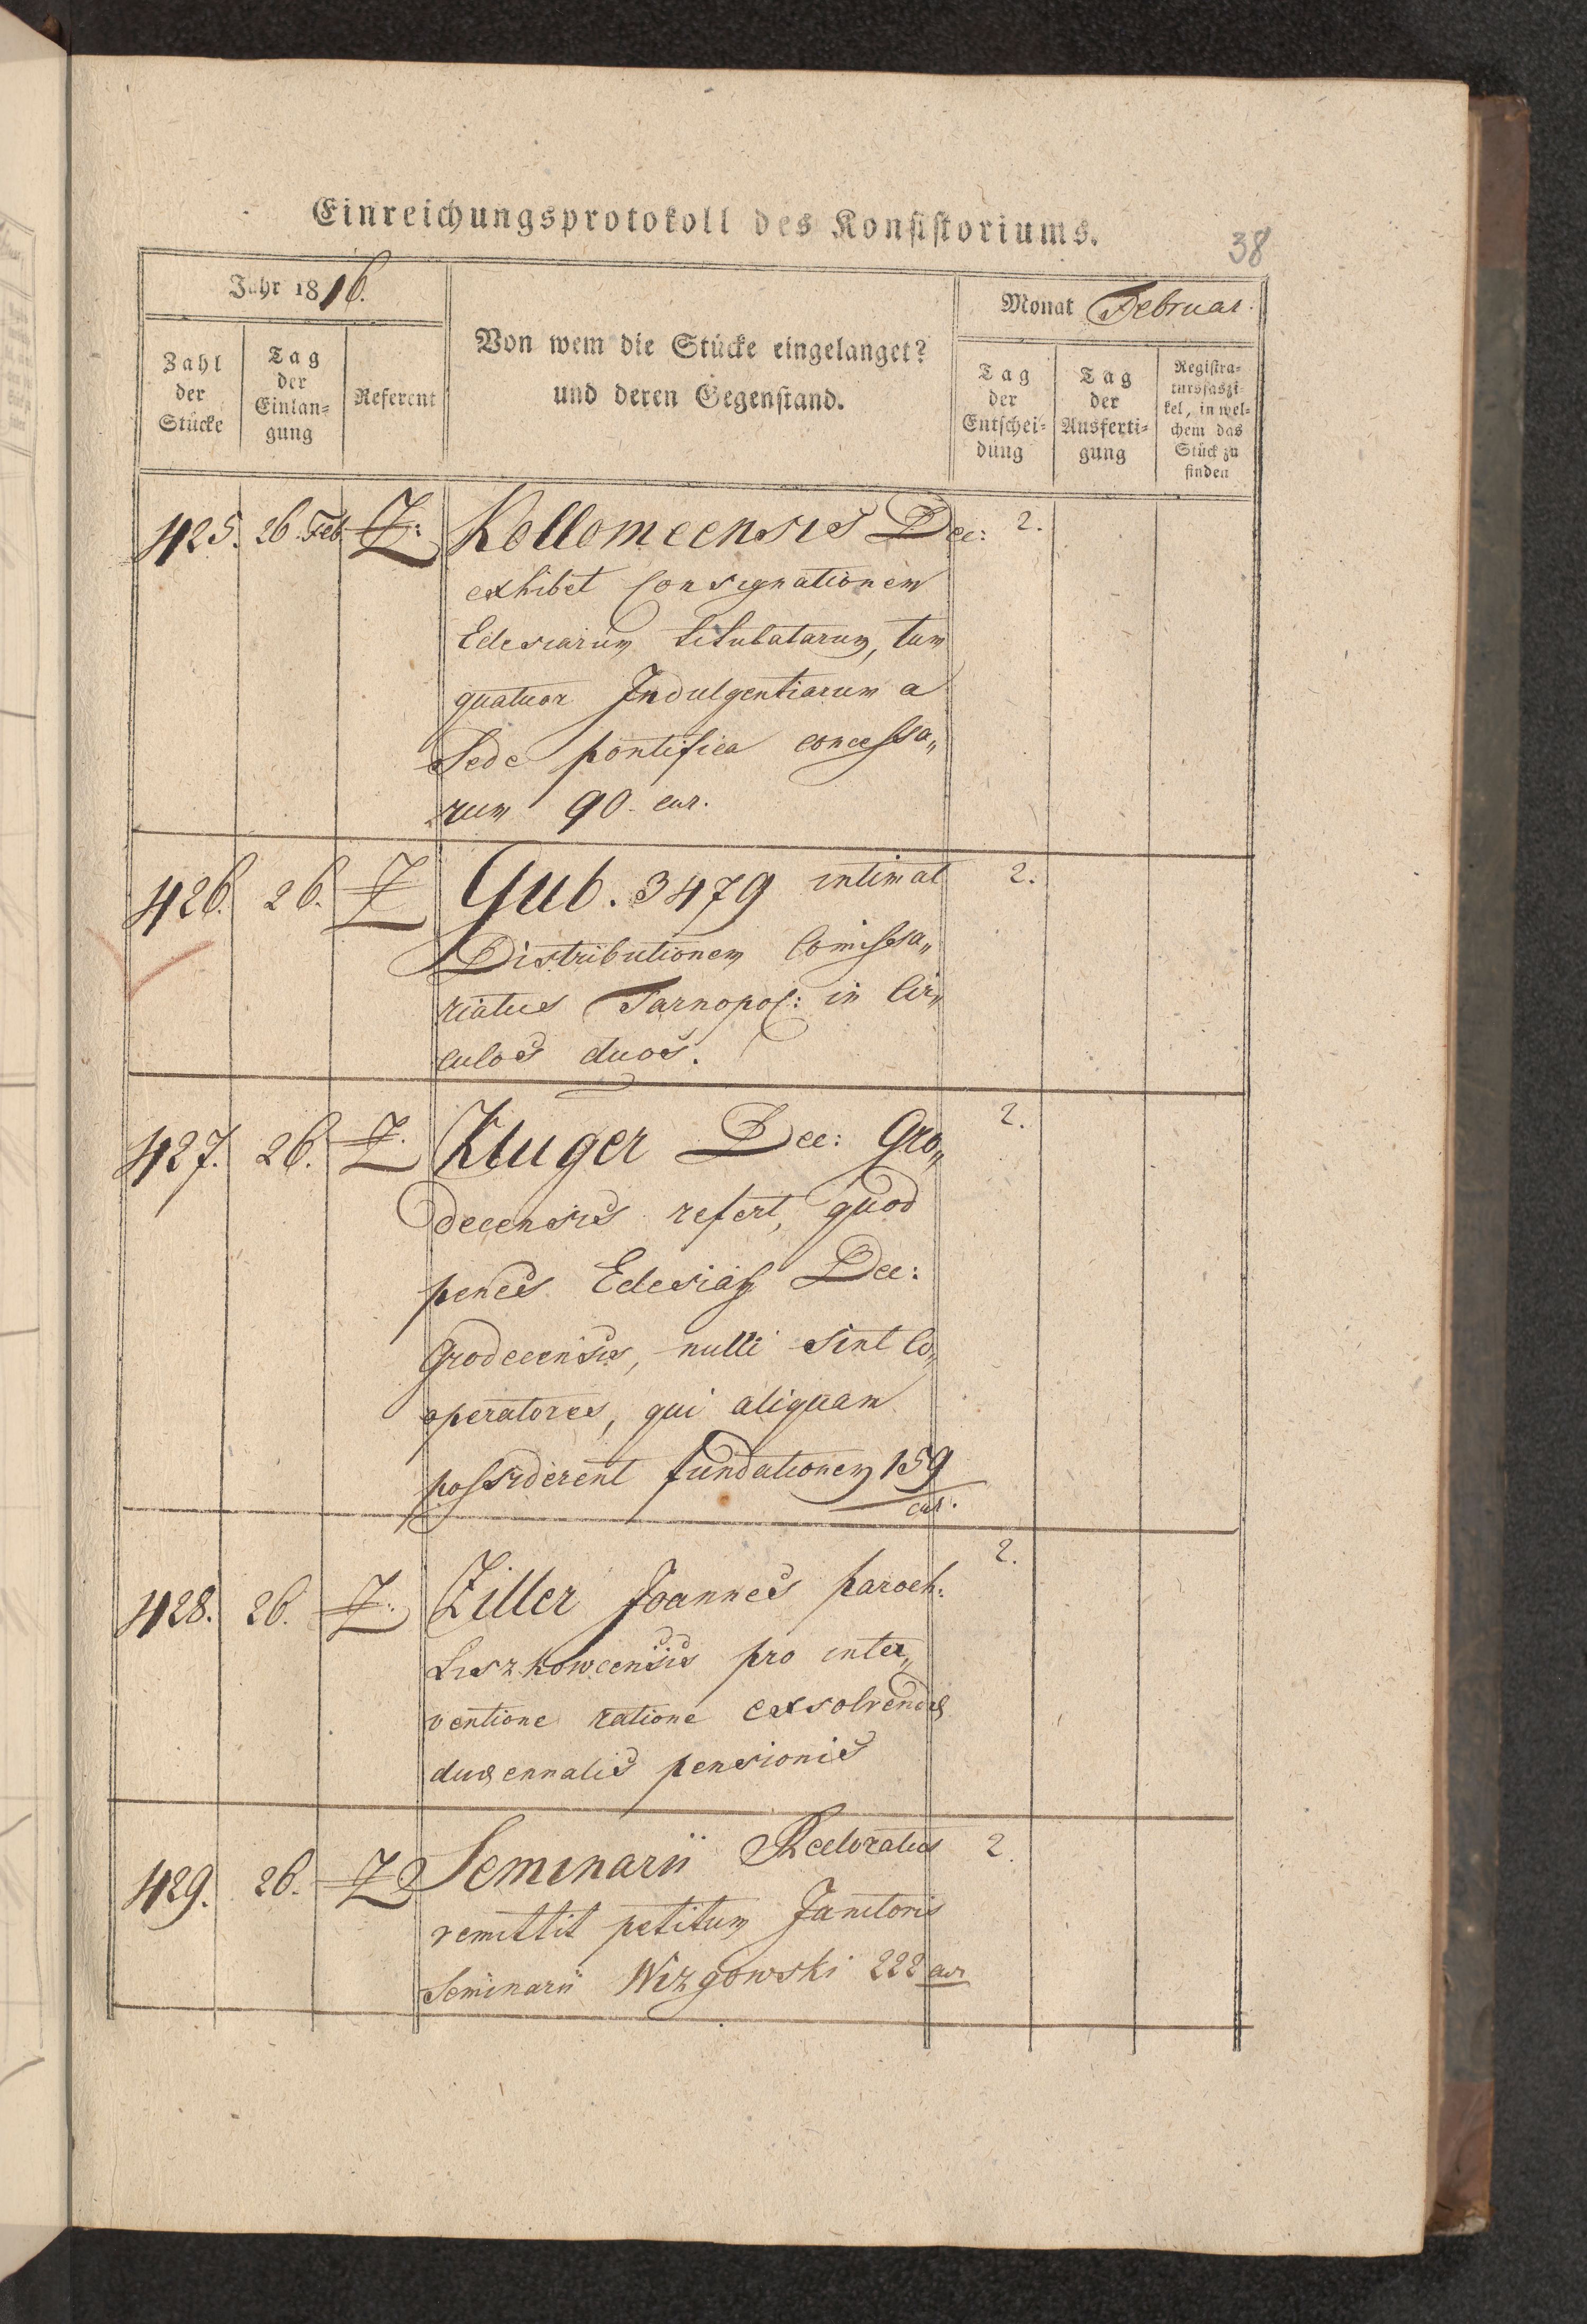 Einreichungsprotokoll des Konsistoriums.
38
Jahr 1816.
Monat Februar.
Zahl der Stücke
Tag der Einlan-gung
Referent
Von wem die Stücke eingelanget?
und deren Gegenstand.
Tag der Entschei-dung
Tag der Ausferti-gung
Registra-tursfaszi-kel, in wel-chem das Stück zu finden
425. 26. Feb. Z: Kollomeensis Dec: 2.
exhibet Consignationem
Eclesiarum titulatarum, tum
quatuor Indulgentiarum a
Sede pontifica concessa„
rum 90. cur.
426. 26. Z Gub. 3479 intimat 2.
Distributionem Comissa„
riatus Tarnopol: in Cir„
culos duos.
427. 26. Z. Kluger Dec: Gro„ 2.
decensis refert, quod
penes Eclesias Dec:
Grodecensis, nulli sint Co„
operatores, qui aliquam
possiderent fundationem 159
cur.
428. 26. Z. Ziller Joannes paroch: 2.
Liszkowcensis pro inter„
ventione ratione exsolvendae
duaennalis pensionis
429. 26. Z Seminarii Rectoratus 2.
remittit petitum Janitoris
Seminarii Wizgowski 222 cur